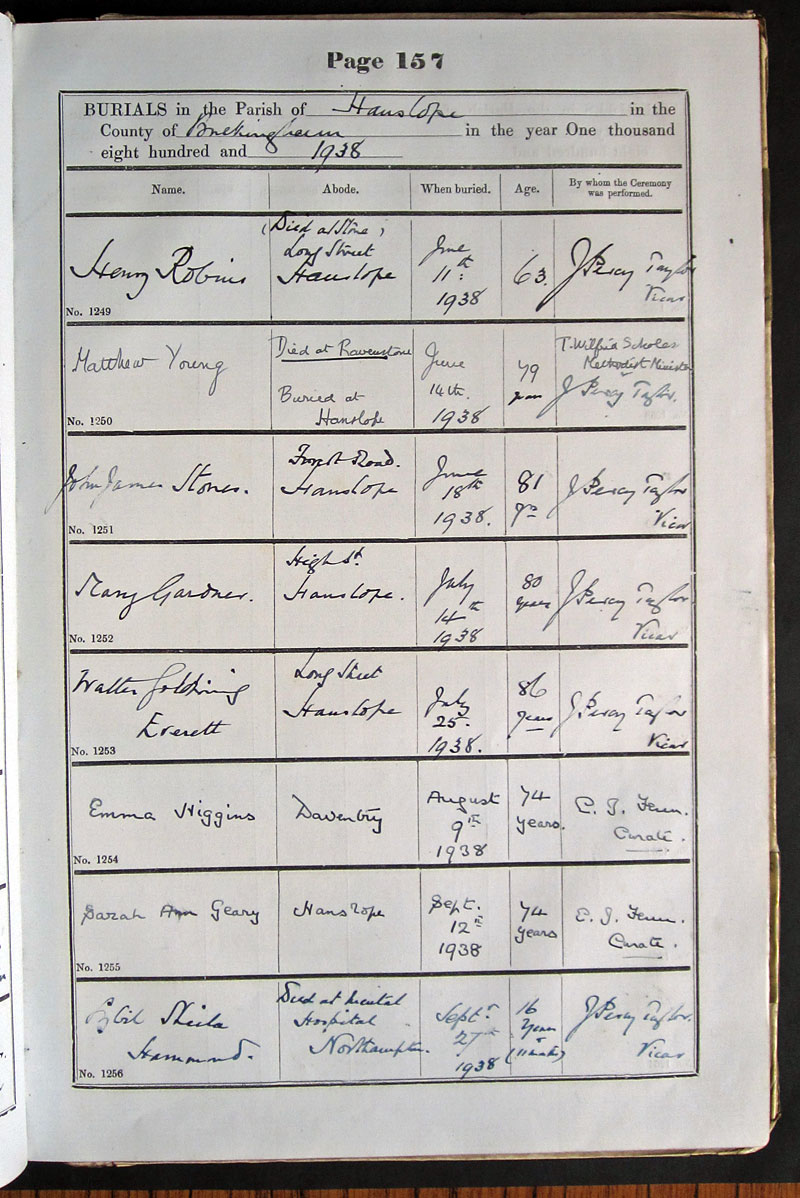 Page 157
BURIALS in the Parish of Hanslope in the
County of Buckingham in the year One thousand
eight hundred and 1938
Name. Abode. When buried. Age. By whom the Ceremony was performed.
(Died at Stone)
Long Street
Henry Robins Hanslope June 11th 1938 63. J Percy Taylor Vicar
No. 1249
Matthew Young Died at Ravenstone June 79 T. Wilfrid Scholes
Methodist Minister
Buried at 14th. years J Percy Taylor.
Hanslope 1938
No. 1250
Forest Road.
John James Stones. Hanslope June 18th 1938. 81 yrs J Percy Taylor Vicar
No. 1251
High St.
Mary Gardner. Hanslope. July 14th 1938 80 years J Percy Taylor. Vicar
No. 1252
Long Street
Walter Goldring Hanslope July 86 J Percy Taylor
Everett 25. years Vicar
1938.
No. 1253
Emma Higgins Daventry August 9th 1938 74 years. Curate.
No. 1254
Sarah Ann Geary Hanslope Sept. 12th 1938 74 years Curate.
No. 1255
Died at Mental
Sybil Sheila Hospital Sept. 16 J Percy Taylor.
Hammond. Northampton. 27th years Vicar
1938 (11 months)
No. 1256